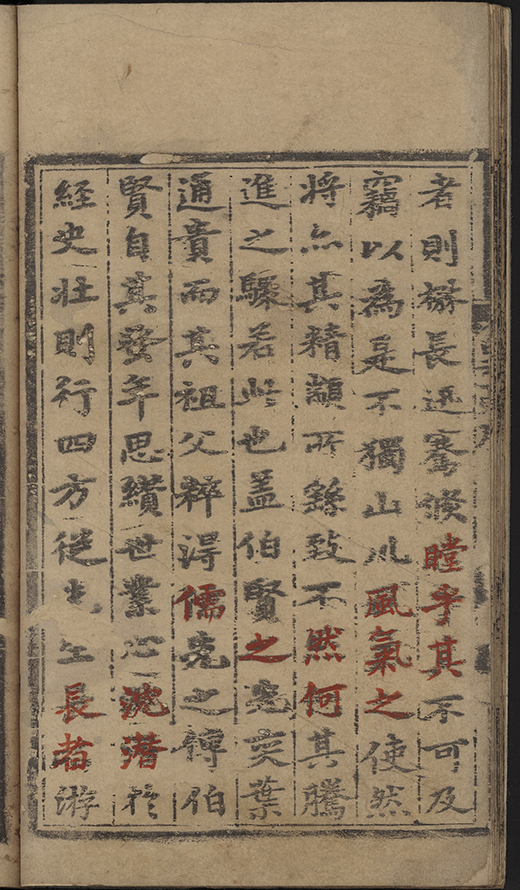 者則㯋長迅騫倏瞠乎其不可及
竊以為是不獨山川風氣之使然
将亦其精顓所繇致不然何其騰
進之驟若此也蓋伯賢之先奕葉
通貴而其祖父粹淂儒先之傳伯
賢自其發年思纘世業心沈潜於
経史壮則行四方従先生長者游